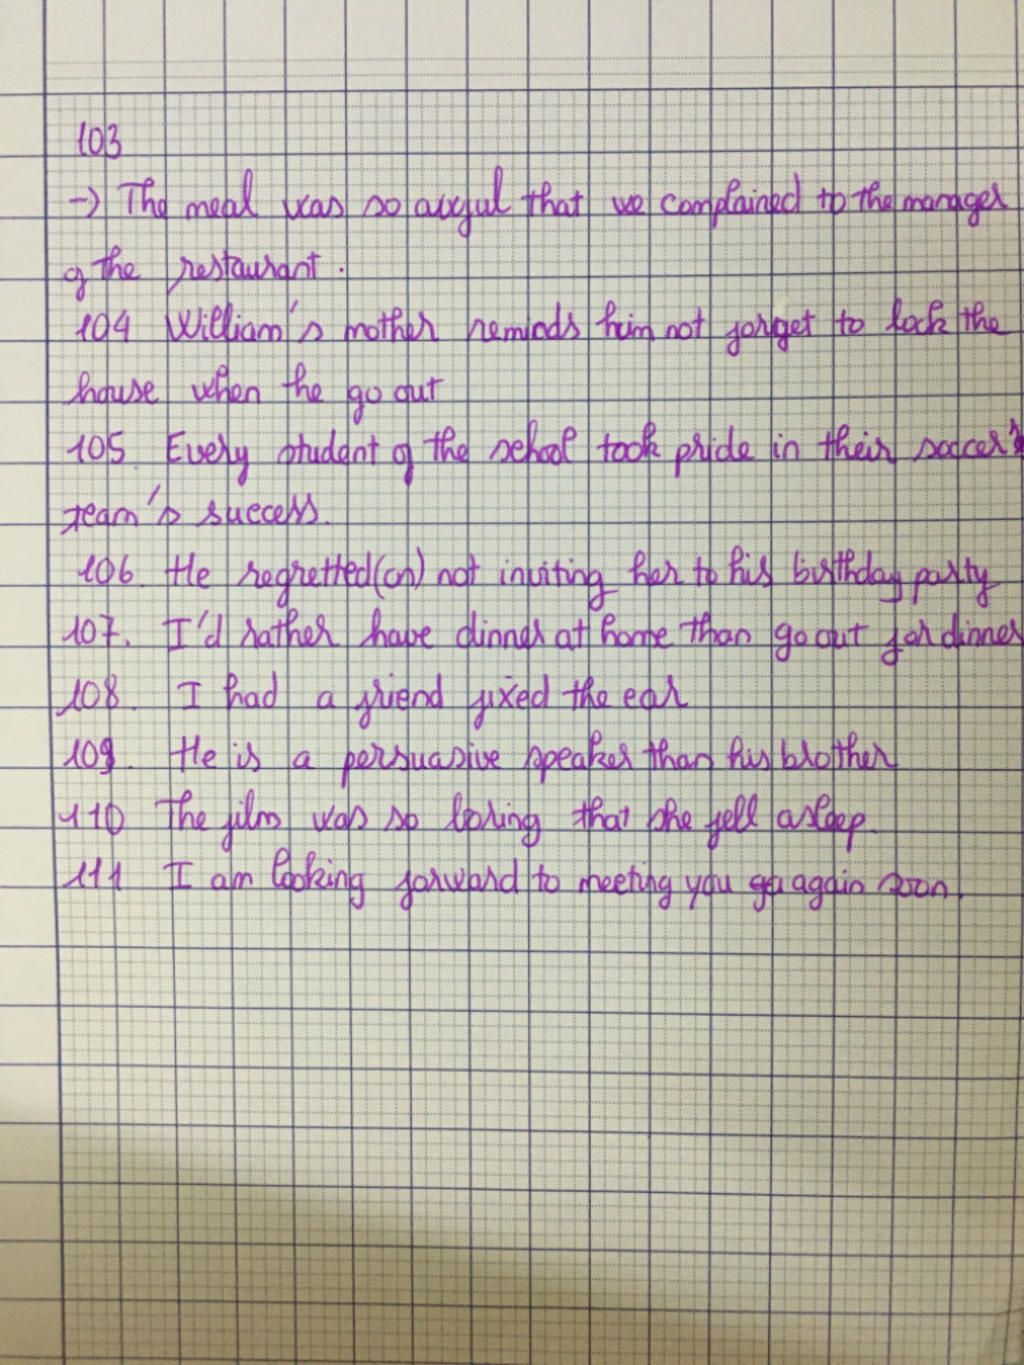 103
→ The meal was so awful that we complained to the manager
of the restaurant.
104 William's mother reminds him not forget to lock the
house when he go out
105. Every student of the school took pride in their soccer's
team's success.
106. He regretted(on) not inviting her to his birthday party
107. I'd rather have dinner at home than go out for dinner
108. I had a friend fixed the car
109. He is a persuasive speaker than his brother
110 The film was so boring that she fell asleep.
111 I am looking forward to meeting you again soon.